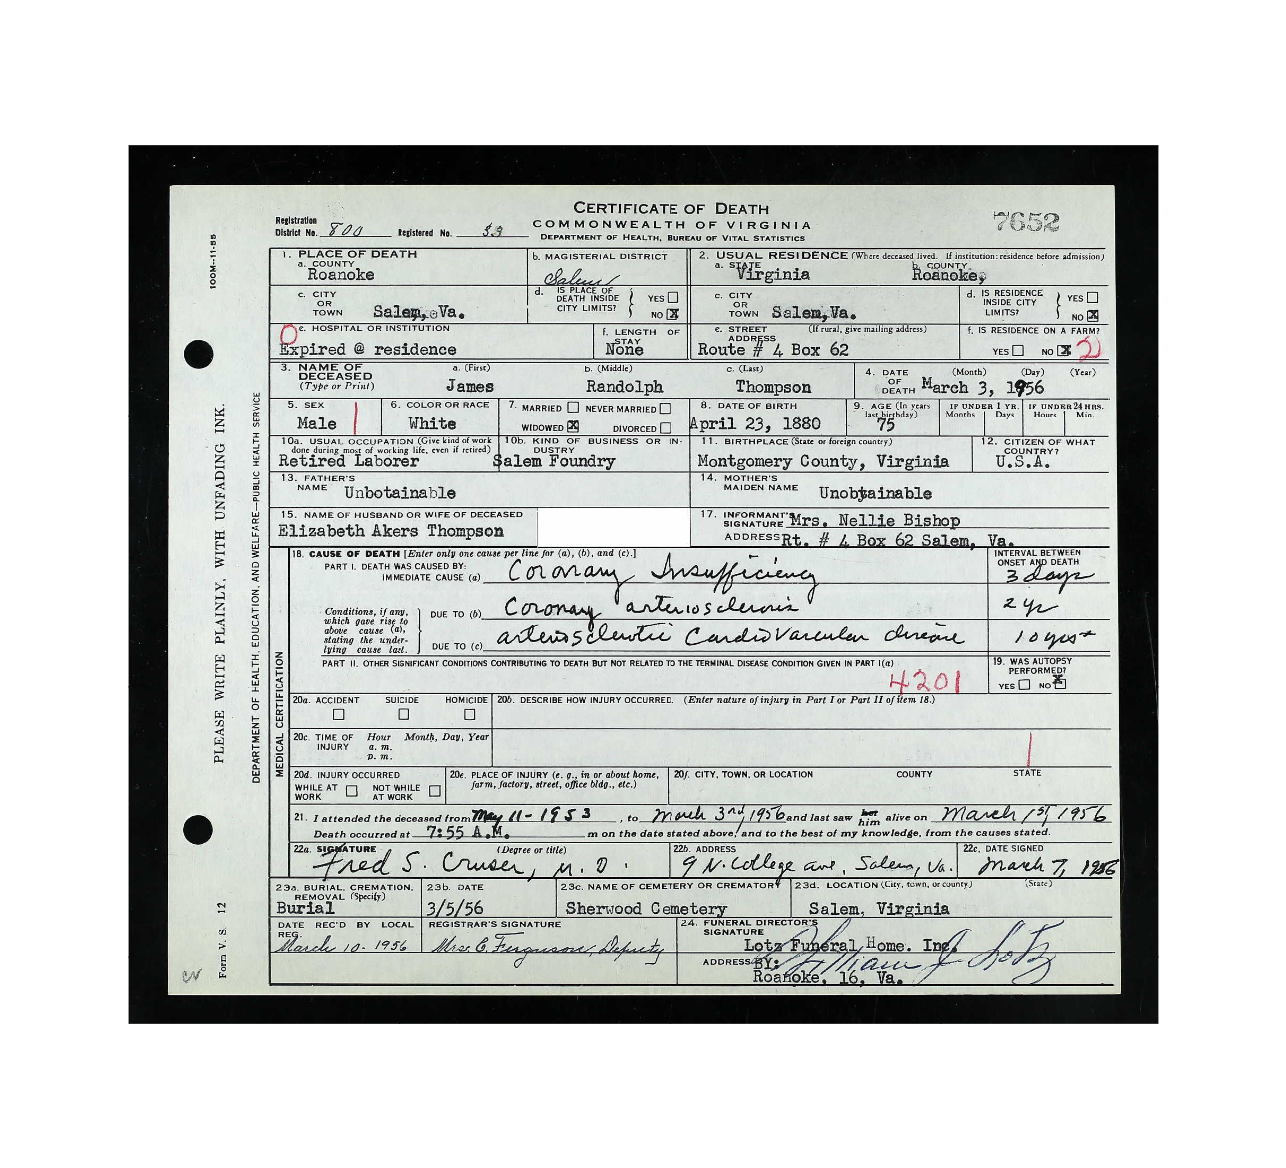 CERTIFICATE OF DEATH
COMMONWEALTH OF VIRGINIA
DEPARTMENT OF HEALTH, BUREAU OF VITAL STATISTICS
7652
Registration District No. 800 Registered No.
1. PLACE OF DEATH
a. COUNTY
Roanoke
b. MAGISTERIAL DISTRICT
Salem
2. USUAL RESIDENCE (Where deceased lived. If institution: residence before admission)
a. STATE
Virginia
b. COUNTY
Roanoke,
c. CITY OR TOWN Salem, Va.
d. IS PLACE OF DEATH INSIDE CITY LIMITS? YES NO X
c. CITY OR TOWN Salem, Va.
d. IS RESIDENCE INSIDE CITY LIMITS? YES NO X
0
e. HOSPITAL OR INSTITUTION
Expired @ residence
f. LENGTH OF STAY
None
e. STREET ADDRESS (If rural, give mailing address)
Route # 4 Box 62
f. IS RESIDENCE ON A FARM?
YES NO X 2
3. NAME OF DECEASED
(Type or Print)
a. (First)
James
b. (Middle)
Randolph
c. (Last)
Thompson
4. DATE OF DEATH (Month) (Day) (Year)
March 3, 1956
5. SEX
Male
6. COLOR OR RACE
White
7. MARRIED NEVER MARRIED
WIDOWED X DIVORCED
8. DATE OF BIRTH
April 23, 1880
9. AGE (In years last birthday)
75
IF UNDER 1 YR.
Months Days
IF UNDER 24 HRS.
Hours Min.
10a. USUAL OCCUPATION (Give kind of work done during most of working life, even if retired)
Retired Laborer
10b. KIND OF BUSINESS OR INDUSTRY
Salem Foundry
11. BIRTHPLACE (State or foreign country)
Montgomery County, Virginia
12. CITIZEN OF WHAT COUNTRY?
U.S.A.
13. FATHER'S NAME Unbotainable
14. MOTHER'S MAIDEN NAME Unobtainable
15. NAME OF HUSBAND OR WIFE OF DECEASED
Elizabeth Akers Thompson
17. INFORMANT'S SIGNATURE Mrs. Nellie Bishop
ADDRESS Rt. # 4 Box 62 Salem, Va.
18. CAUSE OF DEATH [Enter only one cause per line for (a), (b), and (c).]
PART I. DEATH WAS CAUSED BY:
IMMEDIATE CAUSE (a) Coronary Insufficiency
INTERVAL BETWEEN ONSET AND DEATH
3 days
Conditions, if any, which gave rise to above cause (a), stating the underlying cause last.
DUE TO (b) Coronary arteriosclerosis
2 yr
DUE TO (c) arteriosclerotic Cardiovascular disease
10 yrs+
PART II. OTHER SIGNIFICANT CONDITIONS CONTRIBUTING TO DEATH BUT NOT RELATED TO THE TERMINAL DISEASE CONDITION GIVEN IN PART I(a)
4201
19. WAS AUTOPSY PERFORMED?
YES NO X
20a. ACCIDENT SUICIDE HOMICIDE
20b. DESCRIBE HOW INJURY OCCURRED. (Enter nature of injury in Part I or Part II of item 18.)
20c. TIME OF INJURY Hour Month, Day, Year
a. m.
p. m.
20d. INJURY OCCURRED
WHILE AT WORK NOT WHILE AT WORK
20e. PLACE OF INJURY (e. g., in or about home, farm, factory, street, office bldg., etc.)
20f. CITY, TOWN, OR LOCATION COUNTY STATE
21. I attended the deceased from May 11-1953, to March 3rd, 1956 and last saw her him alive on March 1st, 1956
Death occurred at 7:55 A.M. m on the date stated above, and to the best of my knowledge, from the causes stated.
22a. SIGNATURE (Degree or title)
Fred S. Cruser, M. D.
22b. ADDRESS
9 N. College ave, Salem, Va.
22c. DATE SIGNED
March 7, 1956
23a. BURIAL, CREMATION, REMOVAL (Specify)
Burial
23b. DATE
3/5/56
23c. NAME OF CEMETERY OR CREMATORY
Sherwood Cemetery
23d. LOCATION (City, town, or county) (State)
Salem, Virginia
DATE REC'D BY LOCAL REG.
March 10-1956
REGISTRAR'S SIGNATURE
Mrs. C. Ferguson, Deputy
24. FUNERAL DIRECTOR'S SIGNATURE
Lotz Funeral Home. Inc.
ADDRESS BY: William J Lotz
Roanoke, 16, Va.
MEDICAL CERTIFICATION
DEPARTMENT OF HEALTH, EDUCATION, AND WELFARE—PUBLIC HEALTH SERVICE
PLEASE WRITE PLAINLY, WITH UNFADING INK.
100M—11-55
Form V. S. 12